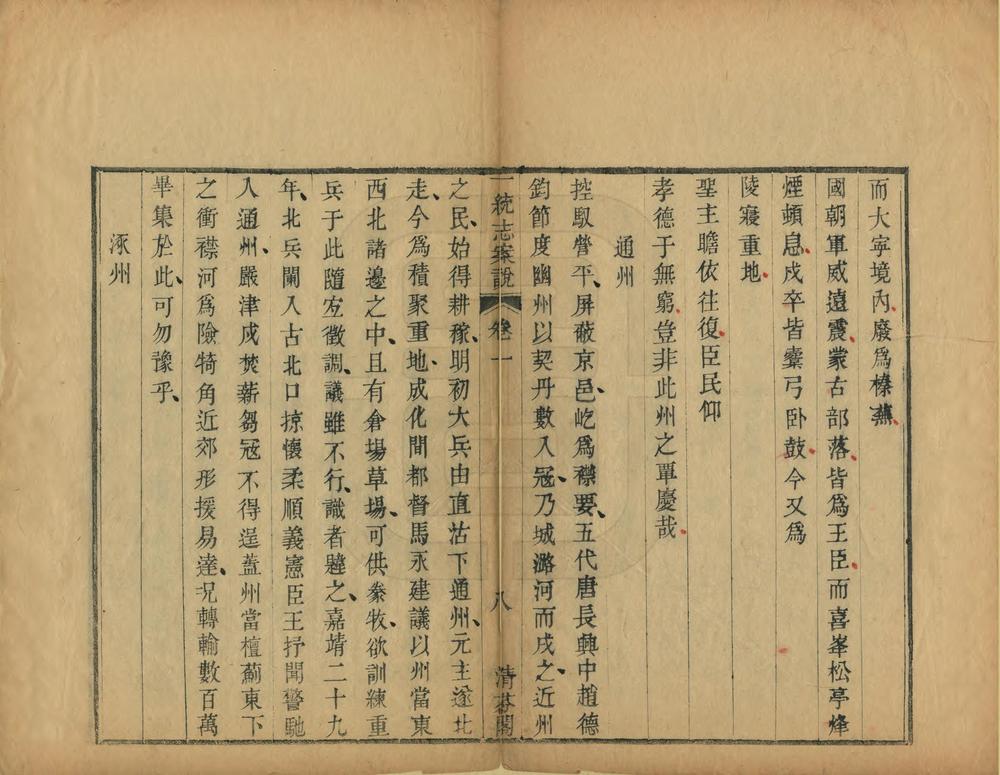 而大寧境內廢爲榛蕪
國朝軍威遠震蒙古部落皆爲王臣而喜峯松亭烽
煙頓息戍卒皆櫜弓卧鼓今又爲
陵寢重地
聖主瞻依往復臣民仰
孝德于無窮豈非此州之覃慶哉
通州
控馭營平屏蔽京邑屹爲襟要五代唐長興中趙德
鈞節度幽州以契丹數入寇乃城潞河而戍之近州
一統志案說 卷一 八 清芬閣
之民始得耕稼明初大兵由直沽下通州元主遂北
走今爲積聚重地成化間都督馬永建議以州當東
西北諸邊之中且有倉場草場可供豢牧欲訓練重
兵于此隨宐徵調議雖不行識者韙之嘉靖二十九
年北兵闌入古北口掠懷柔順義憲臣王抒聞警馳
入通州嚴津戍焚薪芻寇不得逞蓋州當檀薊東下
之衝襟河爲險犄角近郊形援易達况轉輸數百萬
畢集於此可勿豫乎
涿州